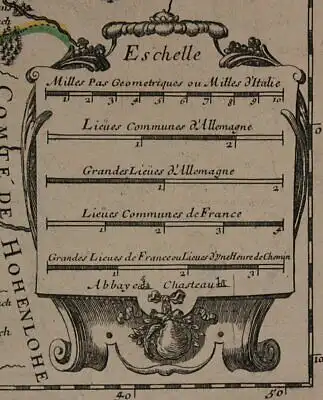 Eschelle
Milles Pas Geometriques ou Milles d'Italie
1 2 3 4 5 6 7 8 9 10
Lieües Communes d'Allemagne
1 2
Grandes Lieües d'Allemagne
1 2
Lieües Communes de France
1 2 3 4
Grandes Lieues de France ou Lieues d'vne Heure de Chemin
1 2 3
Abbaye Chasteau
COMTÉ DE HOHENLOHE
40 50
0
10